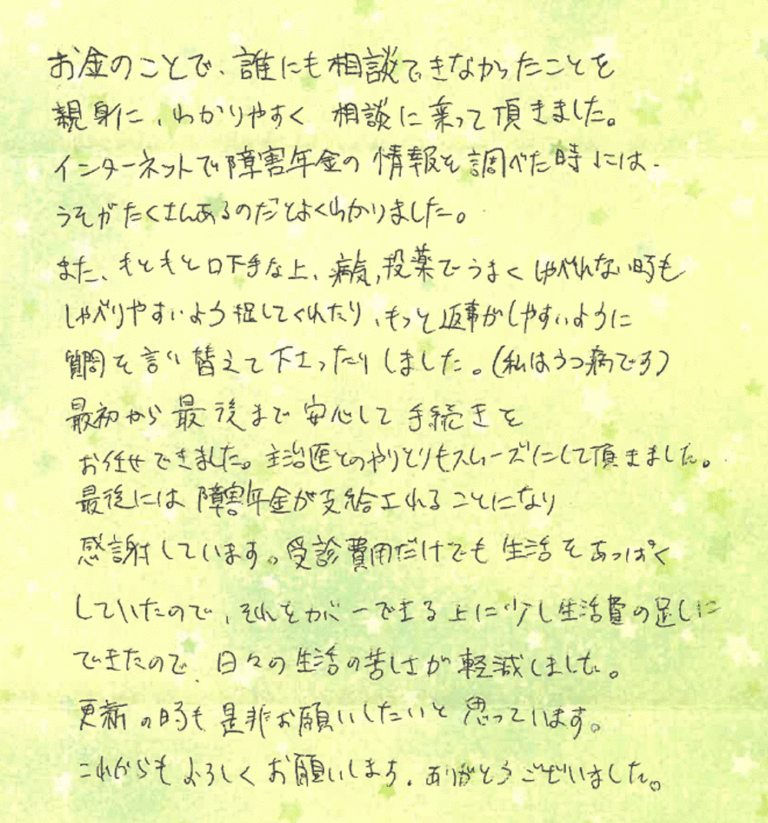 お金のことで、誰にも相談できなかったことを
親身に、わかりやすく 相談に乗って頂きました。
インターネットで障害年金の 情報を調べた時には、
うそがたくさんあるのだとよくわかりました。
また、もともと口下手な上、病気、投薬でうまくしゃべれない時も
しゃべりやすいよう促してくれたり、もっと返事がしやすいように
質問を言い替えて下さったりしました。(私はうつ病です)
最初から最後まで安心して手続きを
お任せできました。主治医とのやりとりもスムーズにして頂きました。
最後には障害年金が支給されることになり
感謝しています。受診費用だけでも生活をあっぱく
していたので、それをカバーできる上に少し生活費の足しに
できたので、日々の生活の苦しさが軽減しました。
更新の時も是非お願いしたいと思っています。
これからもよろしくお願いします。ありがとうございました。